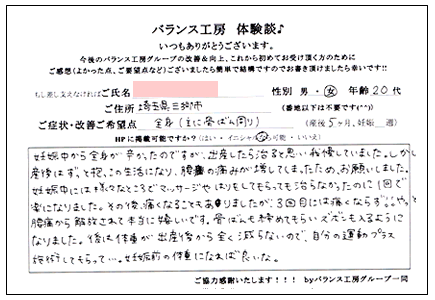 バランス工房 体験談♪
いつもありがとうございます。
今後のバランス工房グループの改善&向上、これから初めてお受け頂く方のために
ご感想(よかった点、ご要望点など)ございましたら簡単で結構ですのでお書き頂けましたら幸いです!!
もし差し支えなければご氏名 性別 男・女 年齢 20代
ご住所 埼玉県三郷市 (番地以下は不要です(^^))
ご症状・改善ご希望点 全身(主に骨ばん周り) (産後5ヶ月、妊娠 週)
HPに掲載可能ですか?(はい・イニシャルなら可能・いいえ)
妊娠中から全身が辛かったのですが、出産したら治ると思い我慢していました。しかし
産後はずっと抱っこの生活になり、腰の痛みが増してしまったため、お願いしました。
妊娠中には様々なところでマッサージやはりをしてもらっても治らなかったのに1回で
楽になりました。その後、痛くなることもありましたが、3回目には痛くならず。。やっと
腰痛から解放されて本当に嬉しいです。骨ばんも締めてもらいズボンも入るように
なりました。後は体重が出産後から全く減らないので、自分の運動プラス
施術してもらって…。妊娠前の体重になれば良いな。
ご協力感謝いたします!!! byバランス工房グループ一同